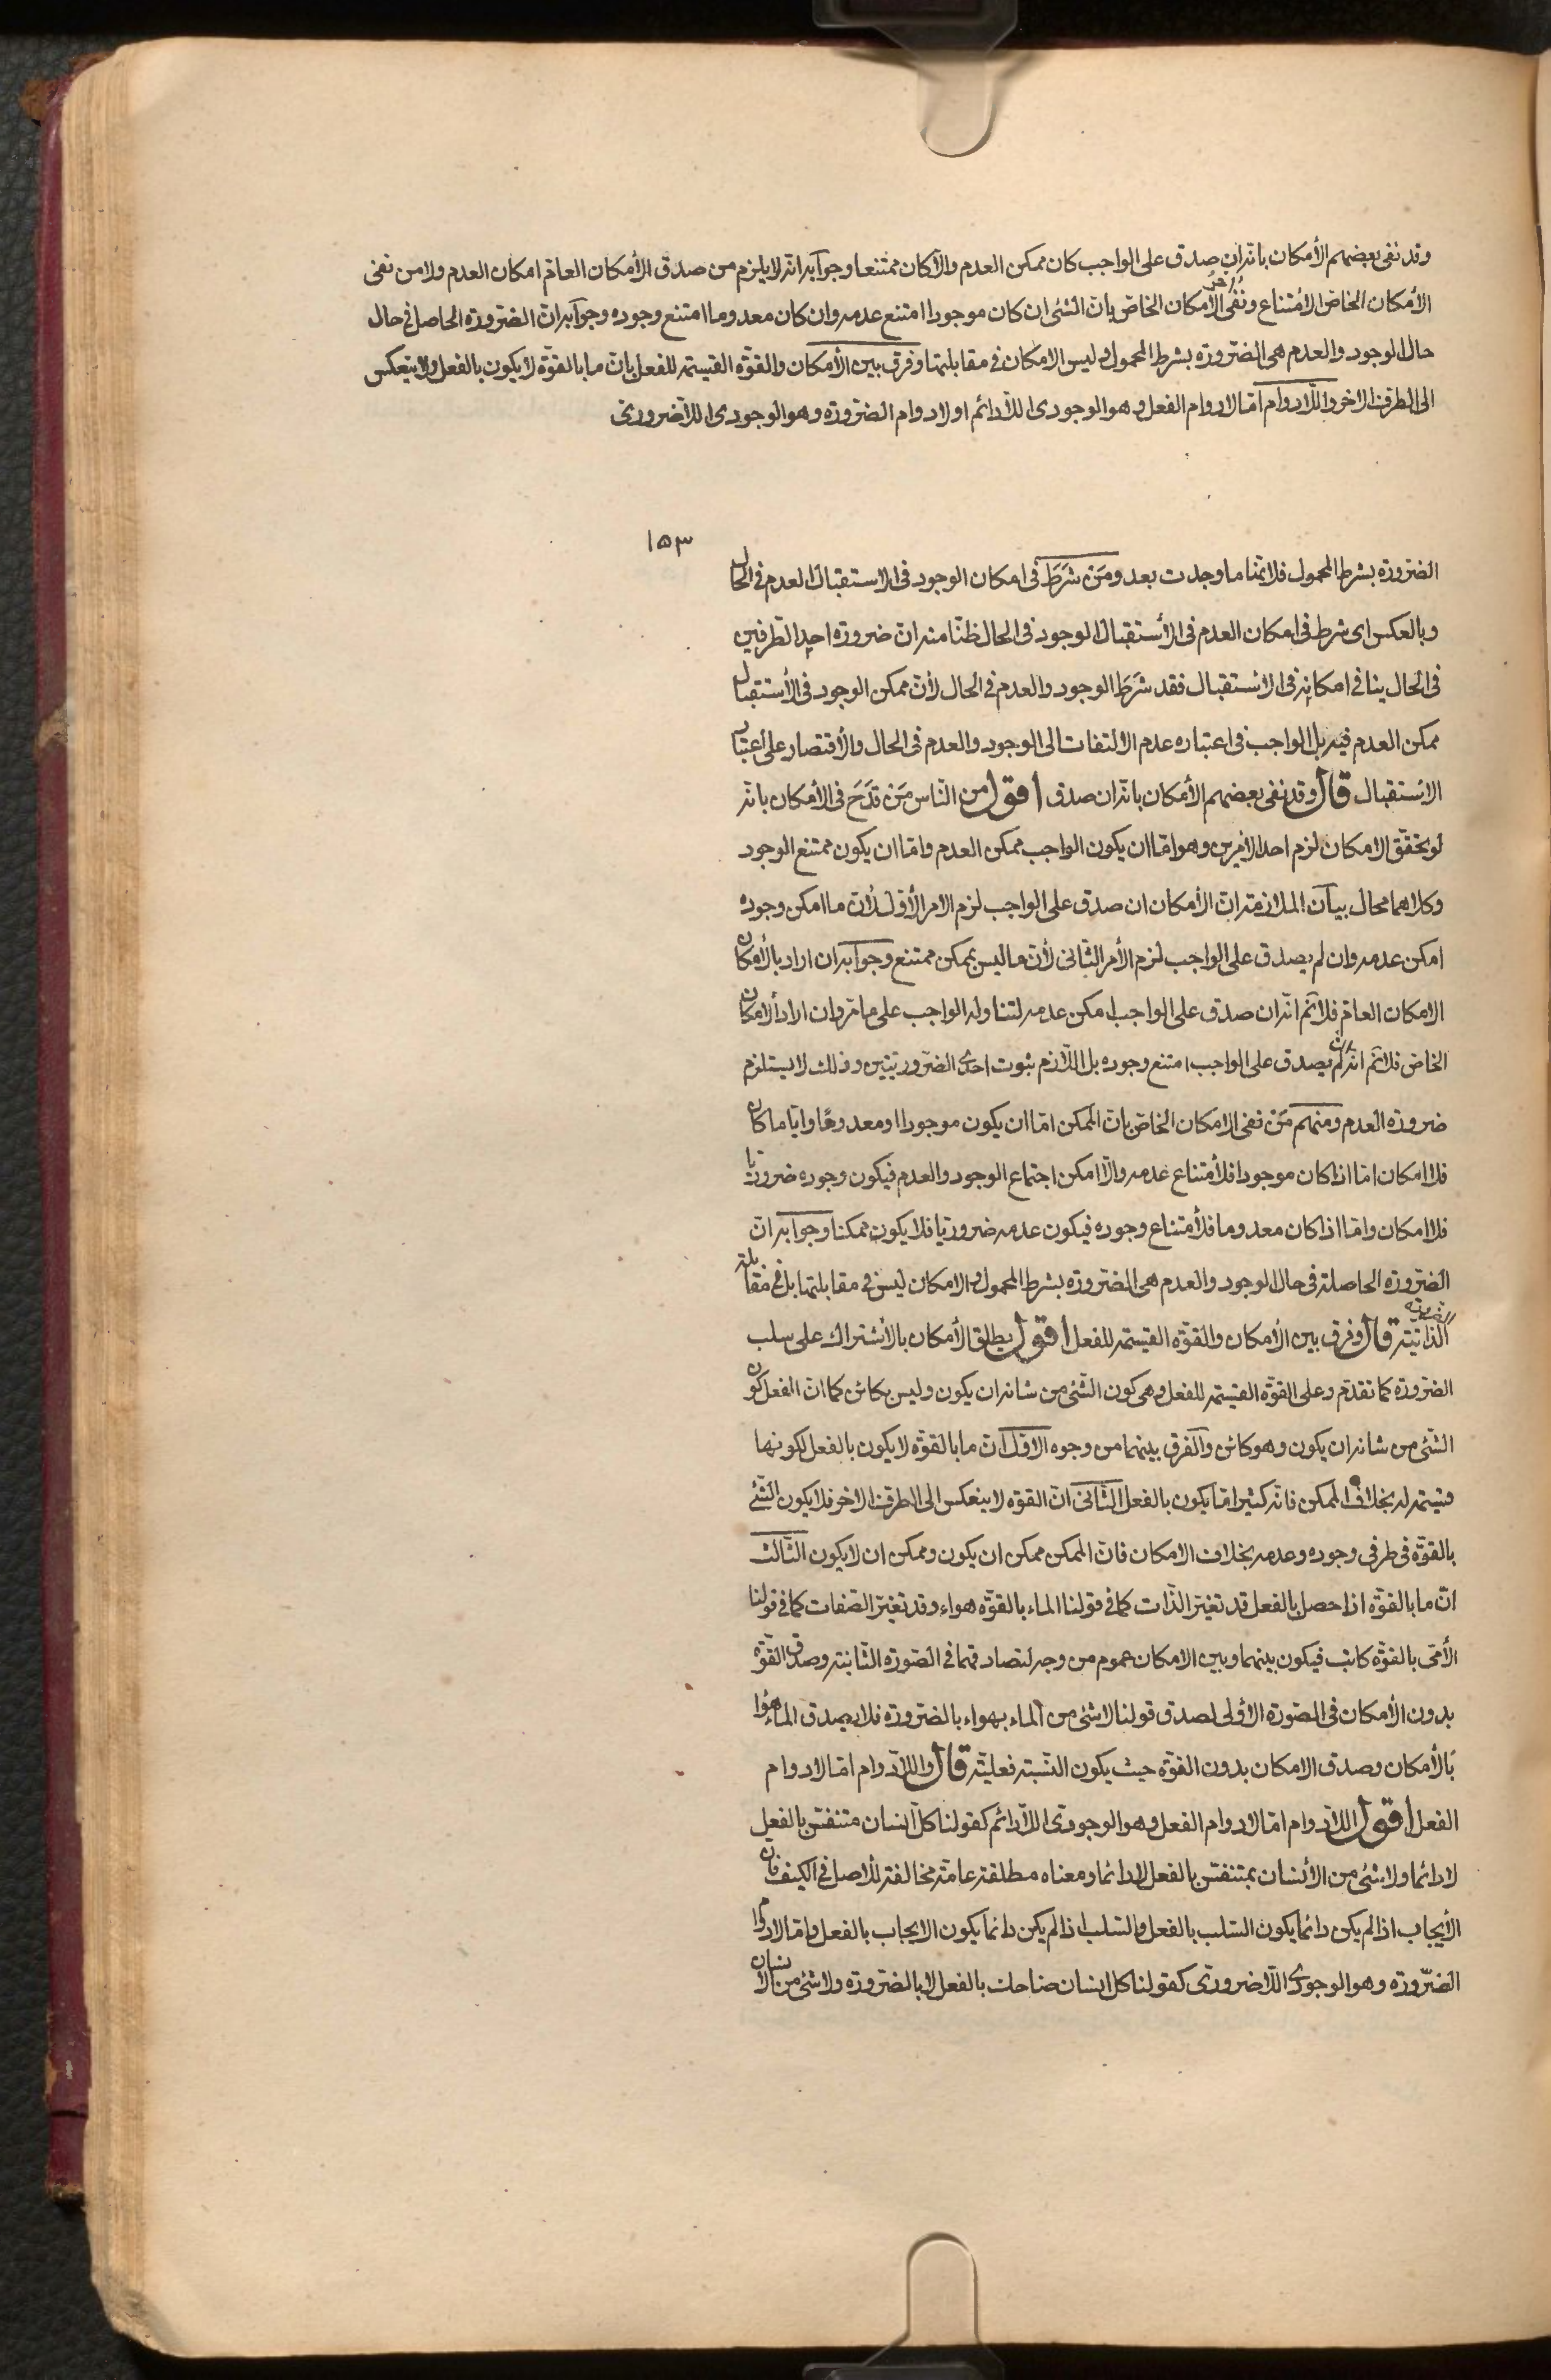 وقد نفى بعضهم الأمكان بانّه ان صدق على الواجب كان ممكن العدم والّا كان ممتنعا وجوابه انّه لا يلزم من صدق الأمكان العامّ امكان العدم ولا من نفى
الأمكان الخاصّ الامتناع ونُفى الأمكان الخاصّ بانّ الشئ ان كان موجودا امتنع عدمه وان كان معدوما امتنع وجوده وجوابه انّ الضّرورة الحاصل فى حال
حال الوجود والعدم هى الضّرورة بشرط المحمول وليس الامكان فى مقابلتها وفرق بين الأمكان والقوّة القسيمة للفعل بانّ ما بالقوّة لا يكون بالفعل ولا ينعكس
الى الطرف الاخر واللّادوام امّا لادوام الفعل وهو الوجودى اللّادائم او لادوام الضّرورة وهو الوجودى اللّاضرورى
١٥٣
الضّرورة بشرط المحمول فلانّها ما وجدت بعد ومَن شَرَطَ فى امكان الوجود فى الاستقبال العدم فى الحال
وبالعكس اى شرط فى امكان العدم فى الأستقبال الوجود فى الحال ظنّا منه انّ ضرورة احد الطّرفين
فى الحال ينافى امكانه فى الاستقبال فقد شَرَطَ الوجود والعدم فى الحال لأنّ ممكن الوجود فى الأستقبال
ممكن العدم فيه بل الواجب فى اعتباره عدم الالتفات الى الوجود والعدم فى الحال والأقتصار على اعتبار
الاستقبال قال وقد نفى بعضهم الأمكان بانّه ان صدق اقول من النّاس مَن قَدَحَ فى الأمكان بانّه
لو تحقّق الامكان لزم احد الأمرين وهو امّا ان يكون الواجب ممكن العدم وامّا ان يكون ممتنع الوجود
وكلاهما محال بيان الملازمة انّ الأمكان ان صدق على الواجب لزم الامر الأوّل لأنّ ما امكن وجوده
امكن عدمه وان لم يصدق على الواجب لزم الأمر الثّانى لأنّ ما ليس بممكن ممتنع وجوابه ان اراد بالأمكان
الامكان العامّ فلا نَم انّه ان صدق على الواجب امكن عدمه لتناوله الواجب على ما مرّ وان اراد الامكان
الخاصّ فلا نَم انّه ان لم يصدق على الواجب امتنع وجوده بل اللّازم ثبوت احدى الضّروريتين وذلك لا يستلزم
ضرورة العدم ومنهم مَن نفى الامكان الخاصّ بانّ الممكن امّا ان يكون موجودا او معدوما وايّاما كان
فلا امكان امّا اذا كان موجودا فلأمتناع عدمه والّا امكن اجتماع الوجود والعدم فيكون وجوده ضروريّا
فلا امكان وامّا اذا كان معدوما فلأمتناع وجوده فيكون عدمه ضروريّا فلا يكون ممكنا وجوابه انّ
الضّرورة الحاصلة فى حال الوجود والعدم هى الضّرورة بشرط المحمول والامكان ليس فى مقابلتها بل فى مقابلة
الضرورة الذّاتيّة قال وفرق بين الأمكان والقوّة القسيمة للفعل اقول يطلق الأمكان بالأشتراك على سلب
الضّرورة كما تقدّم وعلى القوّة القسيمة للفعل وهى كون الشّئ من شانه ان يكون وليس بكائن كما انّ الفعل كون
الشّئ من شانه ان يكون وهو كائن والفرق بينهما من وجوه الاوّل انّ ما بالقوّة لا يكون بالفعل لكونها
قسيمة له بخلاف الممكن فانّه كثيرا مّا يكون بالفعل الثّانى انّ القوّة لا ينعكس الى الطرف الاخر فلا يكون الشّئ
بالقوّة فى طرفى وجوده وعدمه بخلاف الامكان فانّ الممكن ممكن ان يكون وممكن ان لا يكون الثّالث
انّ ما بالقوّة اذا حصل بالفعل قد تغيّر الذّات كما فى قولنا الماء بالقوّة هواء وقد تغيّر الصّفات كما فى قولنا
الأمّى بالقوّة كاتب فيكون بينهما وبين الامكان عموم من وجه لتصادقهما فى الصّورة الثّانية وصدق القوّة
بدون الأمكان فى الصّورة الأولى لصدق قولنا لا شئ من الماء بهواء بالضّرورة فلا يصدق الماء هواء
بالأمكان وصدق الامكان بدون القوّة حيث يكون النّسبة فعليّة قال واللّادوام امّا لادوام
الفعل اقول اللّادوام امّا لادوام الفعل وهو الوجودىّ اللّادائم كقولنا كلّ انسان متنفّس بالفعل
لا دائما ولا شئ من الأنسان بمتنفّس بالفعل لا دائما ومعناه مطلقة عامّة مخالفة للأصل فى الكيف فانّ
الأيجاب اذا لم يكن دائما يكون السّلب بالفعل والسّلب اذا لم يكن دائما يكون الايجاب بالفعل وامّا لادوام
الضّرورة وهو الوجودى اللّاضرورىّ كقولنا كلّ انسان ضاحك بالفعل لا بالضّرورة ولا شئ من الانسان